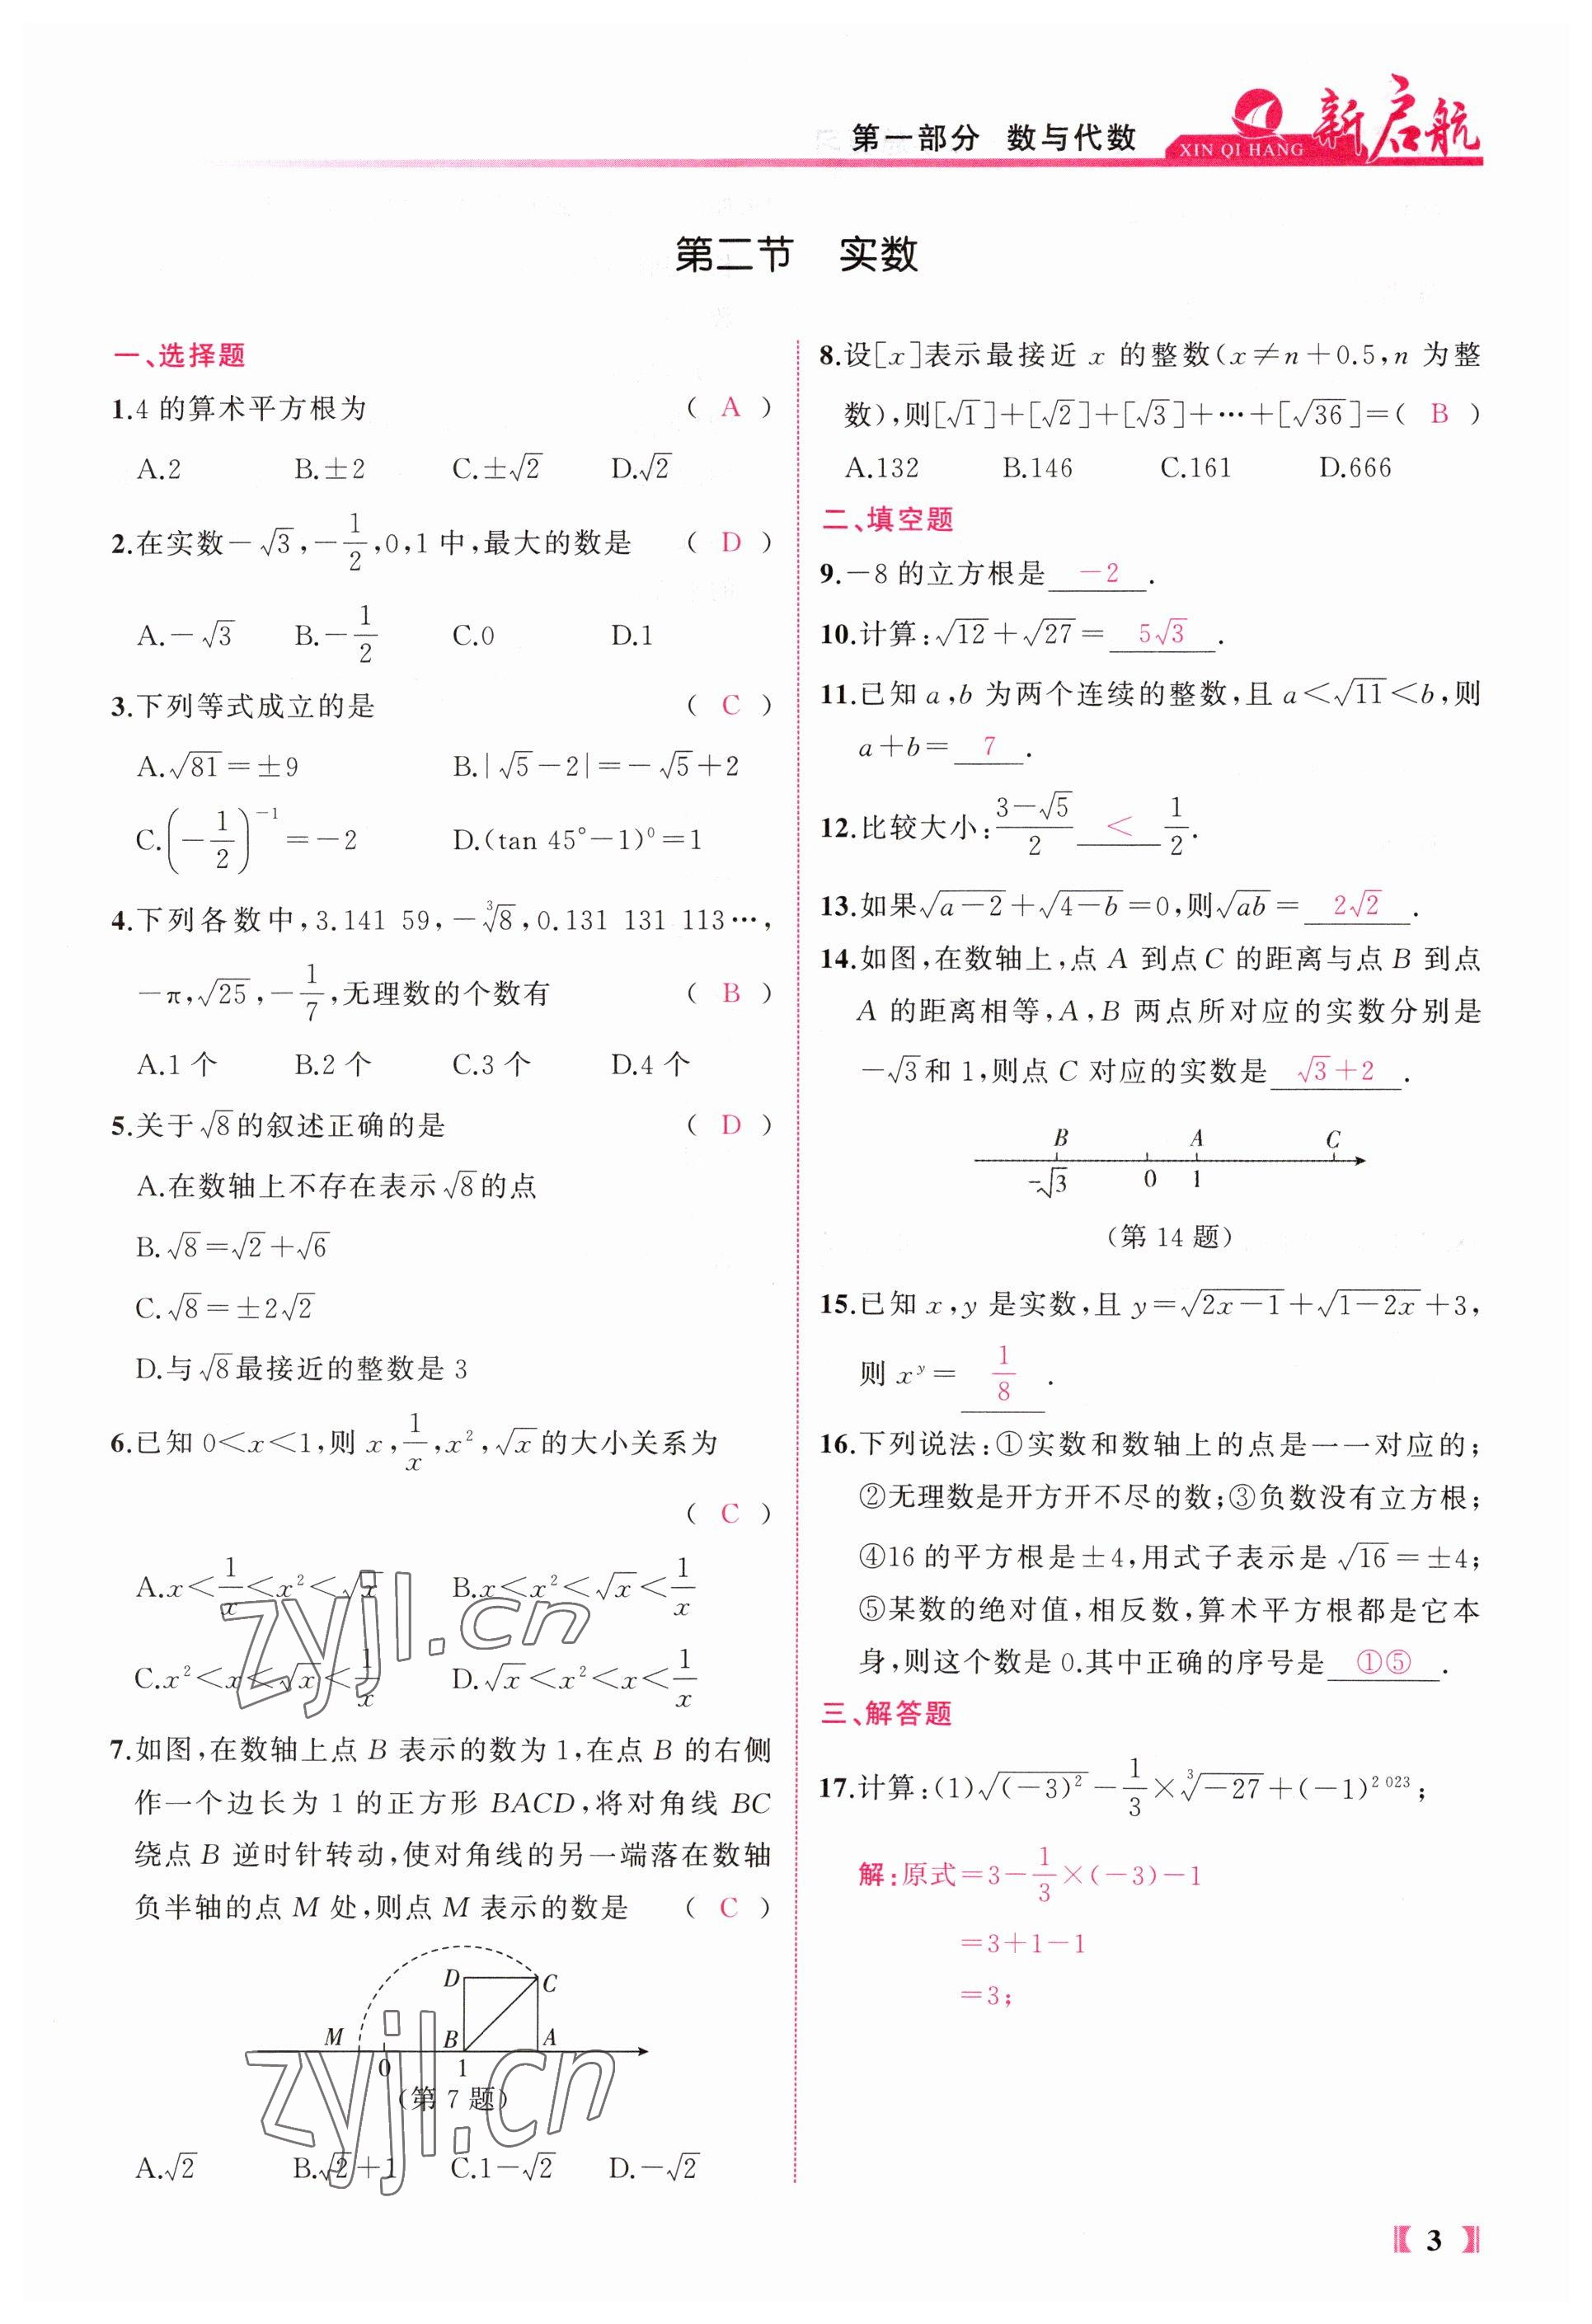 第一部分 数与代数
XIN QI HANG 新启航
第二节 实数
一、选择题
1.4 的算术平方根为 ( A )
A.2 B.±2 C.±√2 D.√2
2.在实数-√3,-1/2,0,1 中,最大的数是 ( D )
A.-√3 B.-1/2 C.0 D.1
3.下列等式成立的是 ( C )
A.√81=±9 B.|√5-2|=-√5+2
C.(-1/2)⁻¹=-2 D.(tan 45°-1)⁰=1
4.下列各数中,3.141 59,-³√8,0.131 131 113…,
-π,√25,-1/7,无理数的个数有 ( B )
A.1 个 B.2 个 C.3 个 D.4 个
5.关于√8的叙述正确的是 ( D )
A.在数轴上不存在表示√8的点
B.√8=√2+√6
C.√8=±2√2
D.与√8最接近的整数是 3
6.已知 0<x<1,则 x,1/x,x²,√x的大小关系为
( C )
A.x<1/x<x²<√x B.x<x²<√x<1/x
C.x²<x<√x<1/x D.√x<x²<x<1/x
7.如图,在数轴上点 B 表示的数为 1,在点 B 的右侧
作一个边长为 1 的正方形 BACD,将对角线 BC
绕点 B 逆时针转动,使对角线的另一端落在数轴
负半轴的点 M 处,则点 M 表示的数是 ( C )
D C
M B A
0 1
(第 7 题)
A.√2 B.√2+1 C.1-√2 D.-√2
8.设[x]表示最接近 x 的整数(x≠n+0.5,n 为整
数),则[√1]+[√2]+[√3]+…+[√36]=( B )
A.132 B.146 C.161 D.666
二、填空题
9.-8 的立方根是 -2 .
10.计算:√12+√27= 5√3 .
11.已知 a,b 为两个连续的整数,且 a<√11<b,则
a+b= 7 .
12.比较大小:(3-√5)/2 < 1/2.
13.如果√(a-2)+√(4-b)=0,则√(ab)= 2√2 .
14.如图,在数轴上,点 A 到点 C 的距离与点 B 到点
A 的距离相等,A,B 两点所对应的实数分别是
-√3和 1,则点 C 对应的实数是 √3+2 .
B A C
-√3 0 1
(第 14 题)
15.已知 x,y 是实数,且 y=√(2x-1)+√(1-2x)+3,
则 xʸ= 1/8 .
16.下列说法:①实数和数轴上的点是一一对应的;
②无理数是开方开不尽的数;③负数没有立方根;
④16 的平方根是±4,用式子表示是√16=±4;
⑤某数的绝对值,相反数,算术平方根都是它本
身,则这个数是 0.其中正确的序号是 ①⑤ .
三、解答题
17.计算:(1)√((-3)²)-1/3×³√(-27)+(-1)²⁰²³;
解:原式=3-1/3×(-3)-1
=3+1-1
=3;
zyjl.cn
zyjl.cn
3